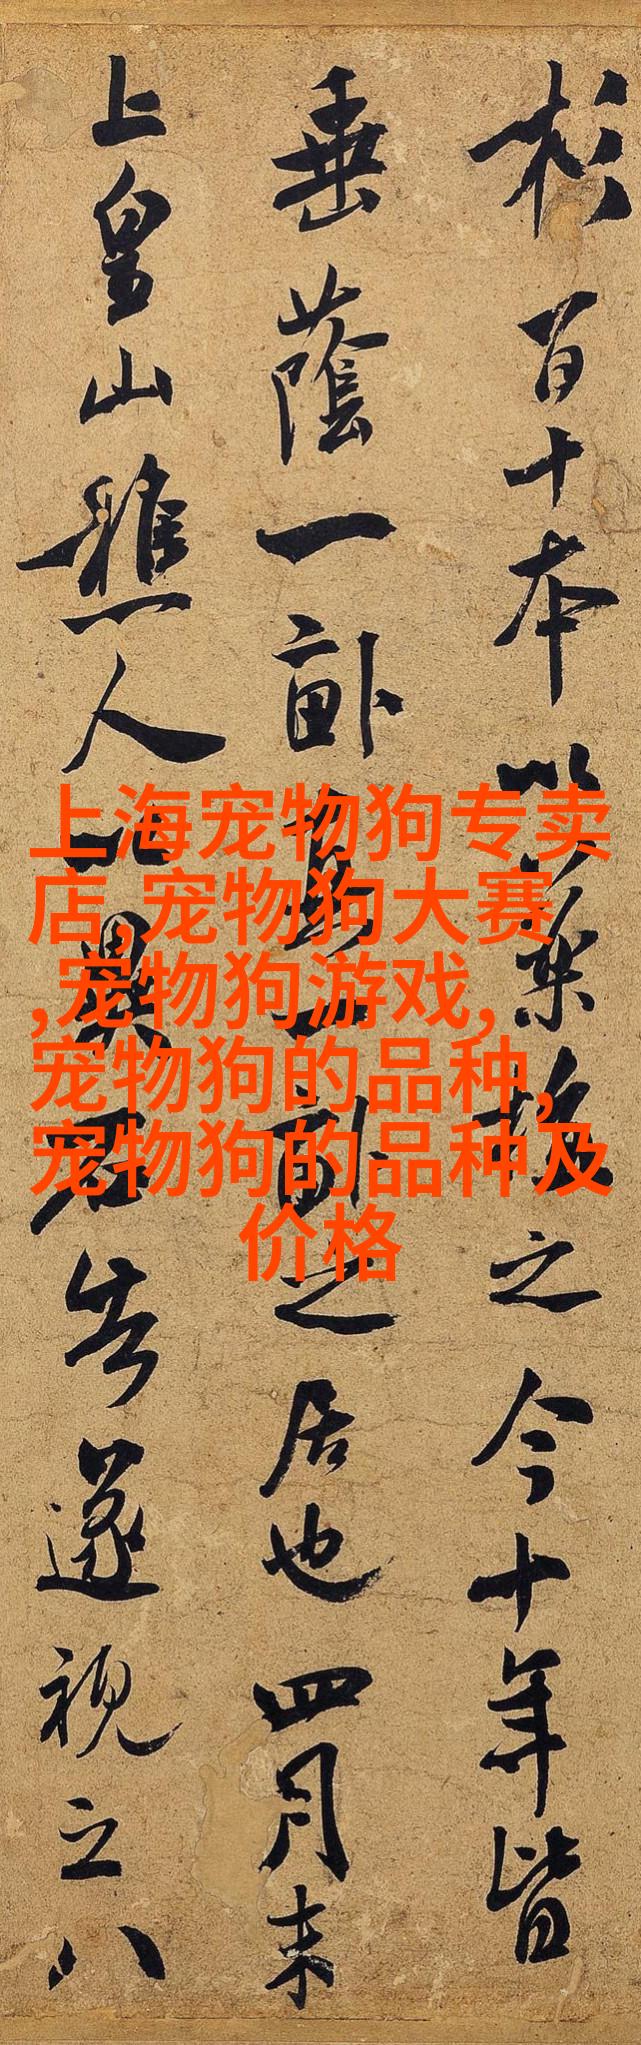 杉百十本以藥植之今十年皆
垂蔭一畝真一畝之居也四月末
上皇山樵人以異石告遂視之八
上海宠物狗专卖
店,宠物狗大赛
,宠物狗游戏,
宠物狗的品种,
宠物狗的品种及
价格